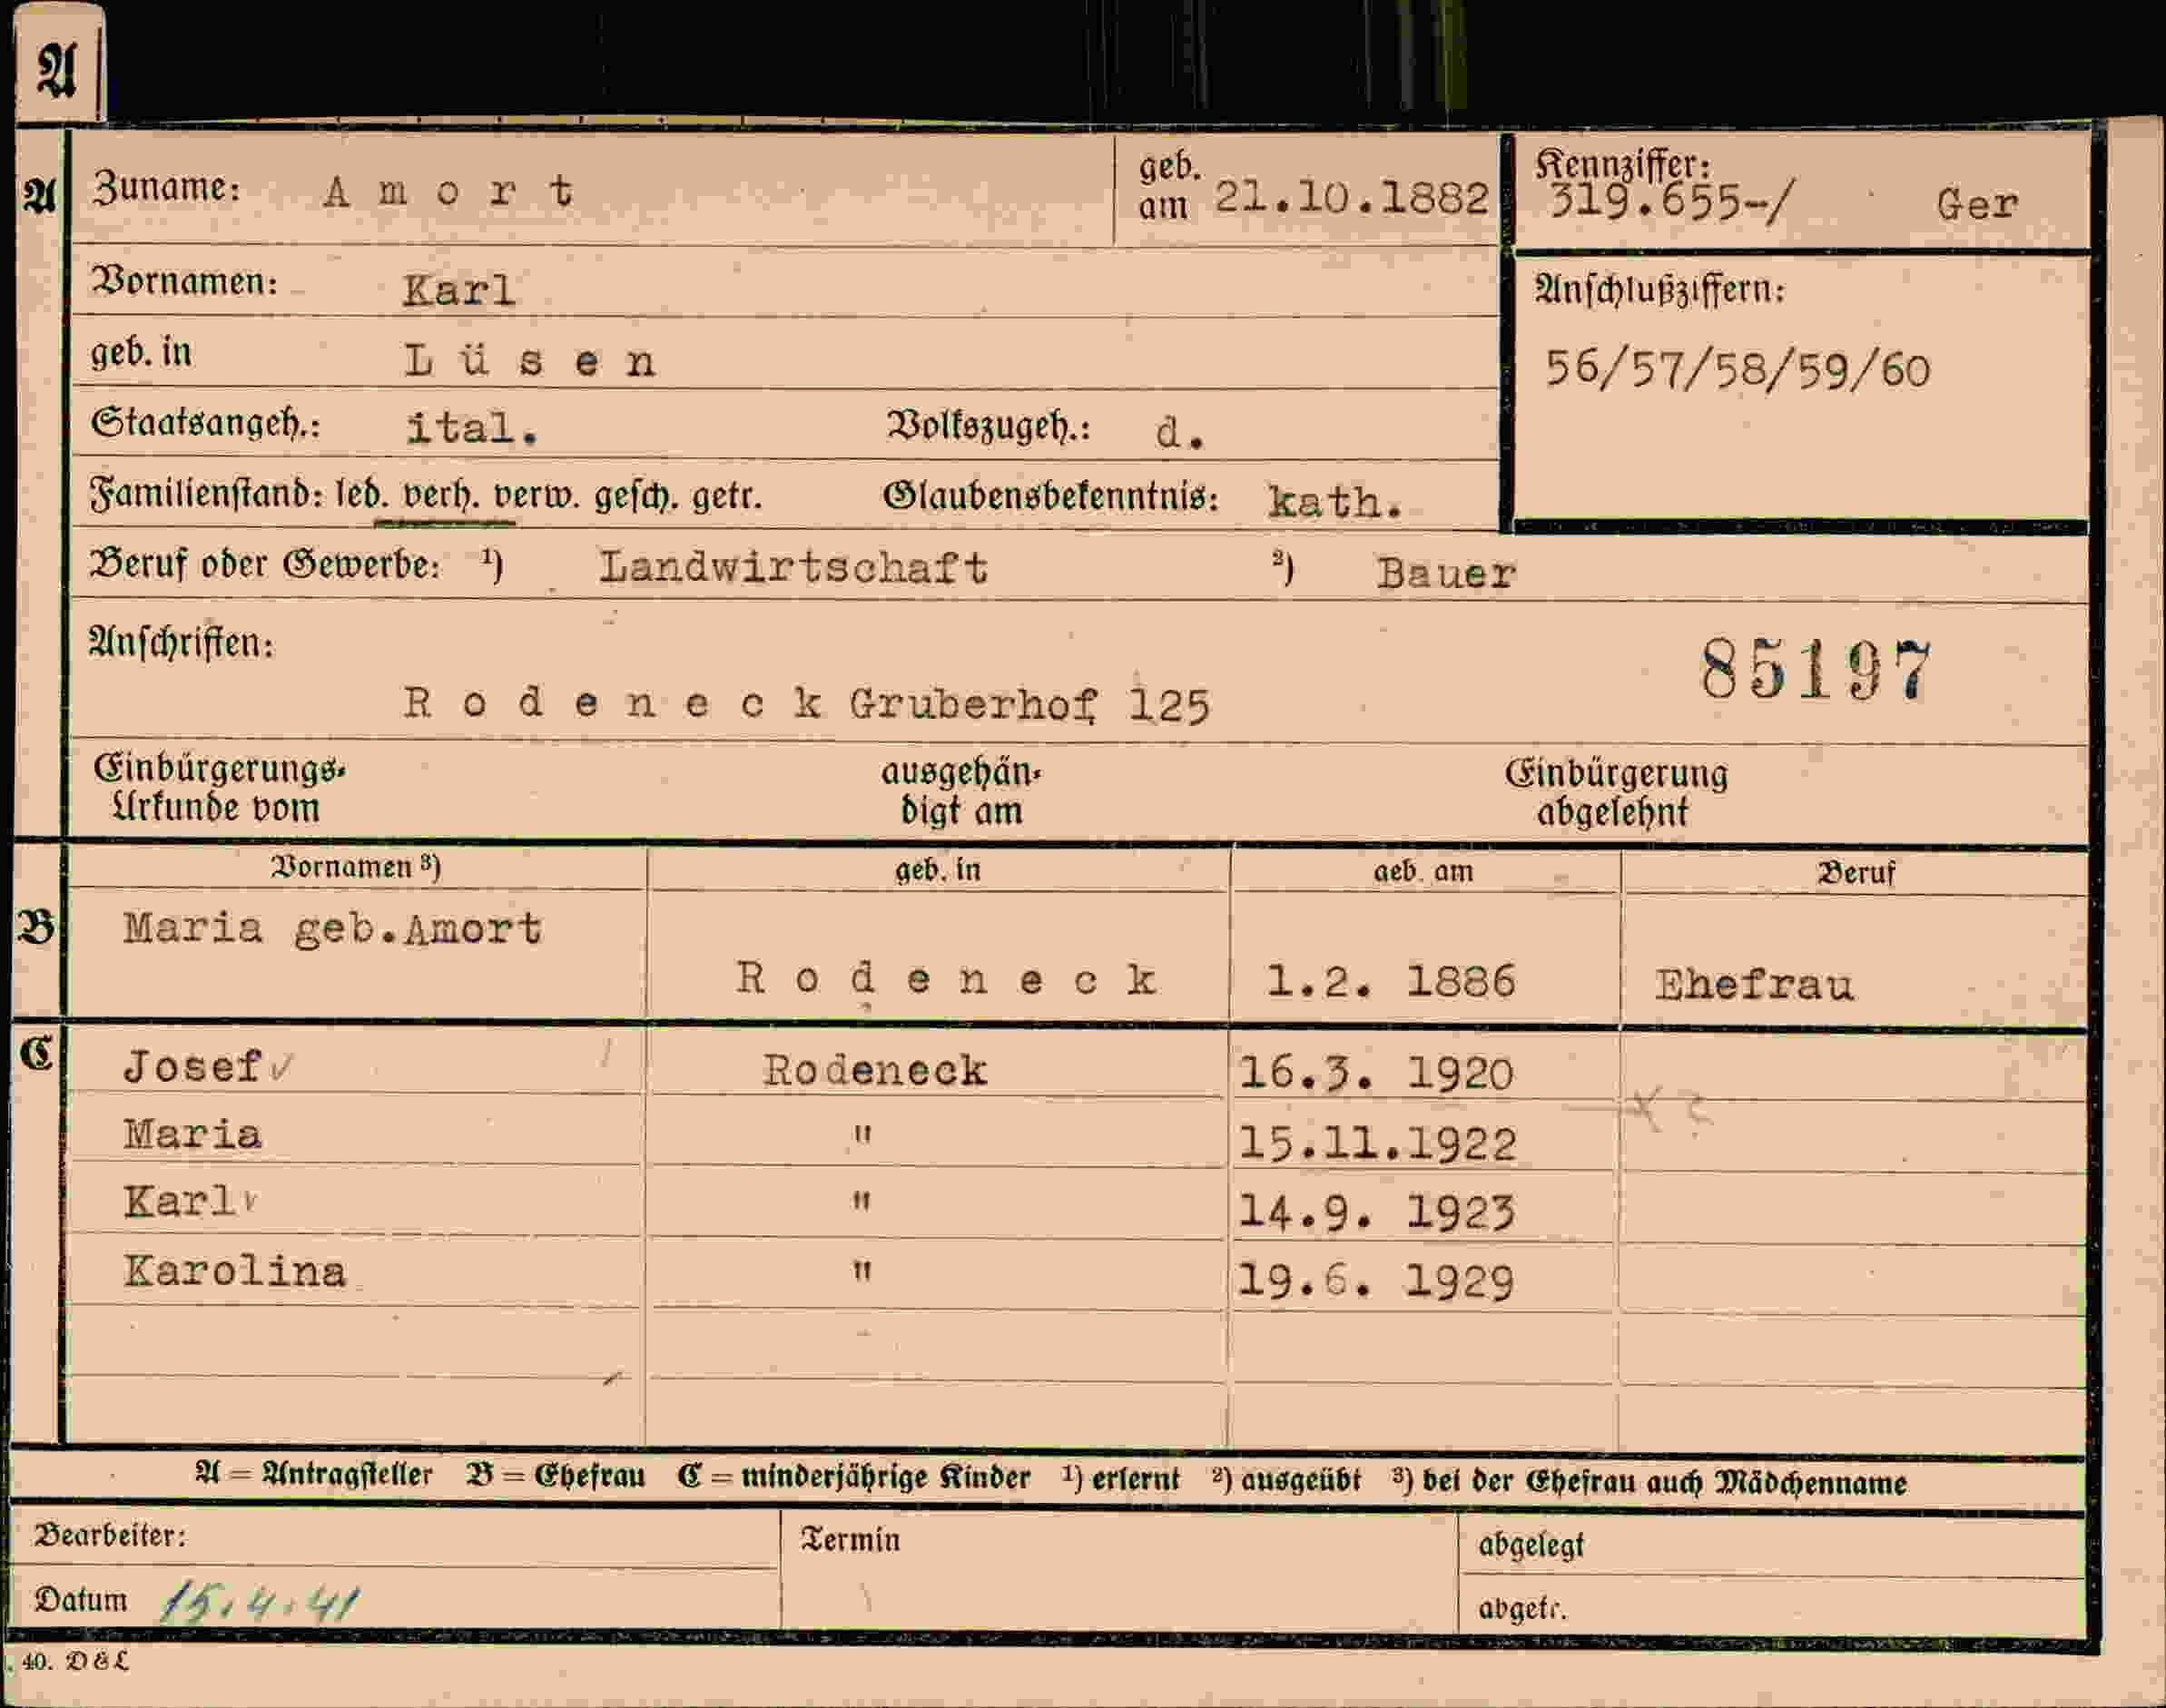 A
A Zuname: A m o r t geb. am 21.10.1882 Kennziffer: 319.655-/ Ger
Vornamen: Karl Anschlußziffern:
geb. in L ü s e n 56/57/58/59/60
Staatsangeh.: ital. Volkszugeh.: d.
Familienstand: led. verh. verw. gesch. getr. Glaubensbekenntnis: kath.
Beruf oder Gewerbe: ¹) Landwirtschaft ²) Bauer
Anschriften: 85197
R o d e n e c k Gruberhof 125
Einbürgerungs- ausgehän- Einbürgerung
Urkunde vom digt am abgelehnt
Vornamen ³) geb. in geb. am Beruf
B Maria geb.Amort
R o d e n e c k 1.2. 1886 Ehefrau
C Josef ✓ Rodeneck 16.3. 1920
Maria " 15.11.1922
Karl " 14.9. 1923
Karolina " 19.6. 1929
A = Antragsteller B = Ehefrau C = minderjährige Kinder ¹) erlernt ²) ausgeübt ³) bei der Ehefrau auch Mädchenname
Bearbeiter: Termin abgelegt
Datum 15.4.41 abgetr.
40. D & L